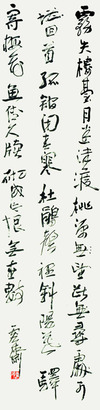 霧失樓臺月迷津渡桃源望斷無尋處可
堪孤館閉春寒杜鵑聲裡斜陽暮驛
寄梅花魚傳尺素砌成此恨無重數